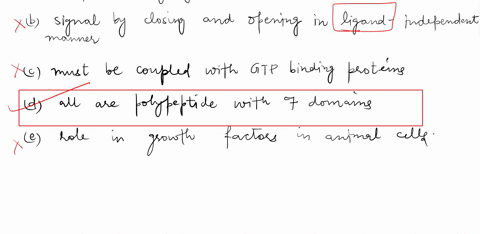 (b) signal by closing and opening in ligand-independent
manner
(c) must be coupled with GTP binding proteins
(d) all are polypeptide with 7 domains
(e) role in growth factors in animal cells.